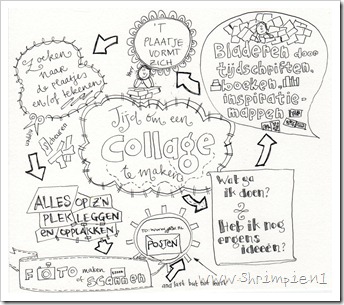 'T
PLAATJE
VORMT
ZICH
Zoeken
naar
de plaatjes
en/of tekenen
Bladeren door
tijdschriften,
boeken,
inspiratie-
mappen
Tijd om een
collage
te maken
ALLES OP Z'N
PLEK LEGGEN
EN OPPLAKKEN
POSTEN
Wat ga
ik doen?
&
Heb ik nog
ergens
ideeën?
FOTO maken
of SCANNEN
and last but not least
www.Shrimpien1